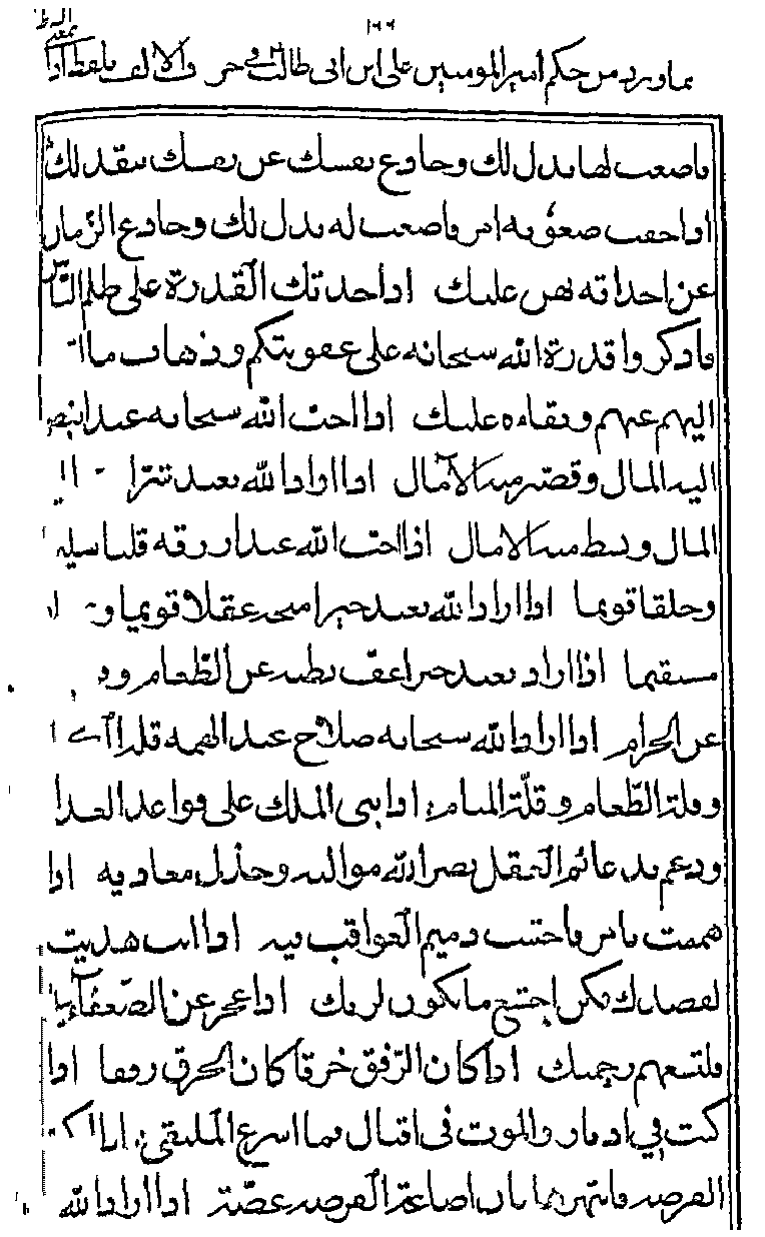 ١٩٩
مما ورد من حكم أمير المومنين على ابن ابى طالب في حرف الالف بلفظ اذا
فاصعب لها تذل لك وخادع نفسك عن نفسك تنقد لك
اذا خفت صعوبة امر فاصعب له يذل لك وخادع الزمان
عن احداثه تهن عليك اذا حدتك القدرة على ظلم الناس
فاذكروا قدرة الله سبحانه على عقوبتكم وذهاب ما
اليهم عنهم وبقاءه عليك اذا احب الله سبحانه عبدا بغض
اليه المال وقصر منه الآمال اذا اراد الله بعبد شرا
المال وبسط منه الامال اذا احب الله عبدا رزقه قلبا سليما
وخلقا قويما اذا اراد الله بعبد خيرا منحه عقلا قويما و
مستقيما اذا اراد بعبد خيرا عف بطنه عن الطعام و
عن الحرام اذا اراد الله سبحانه صلاح عبد الهمه قلة
وقلة الطعام وقلة المنام اذا بنى الملك على قواعد العدل
ودعم بدعائم العقل نصر الله مواليه وخذل معاديه اذا
هممت بامر فاجتنب ذميم العواقب فيه اذا انت هديت
لقصدك فكن اخشع ما تكون لربك اذا عجز عن الضعفاء
فلتسعهم رحمتك اذا كان الرفق خرقا كان الخرق رفقا اذا
كنت في ادبار والموت فى اقبال فما اسرع الملتقى اذا
الفرصه فانتهزها فان اضاعة الفرصه غصة اذا اراد الله